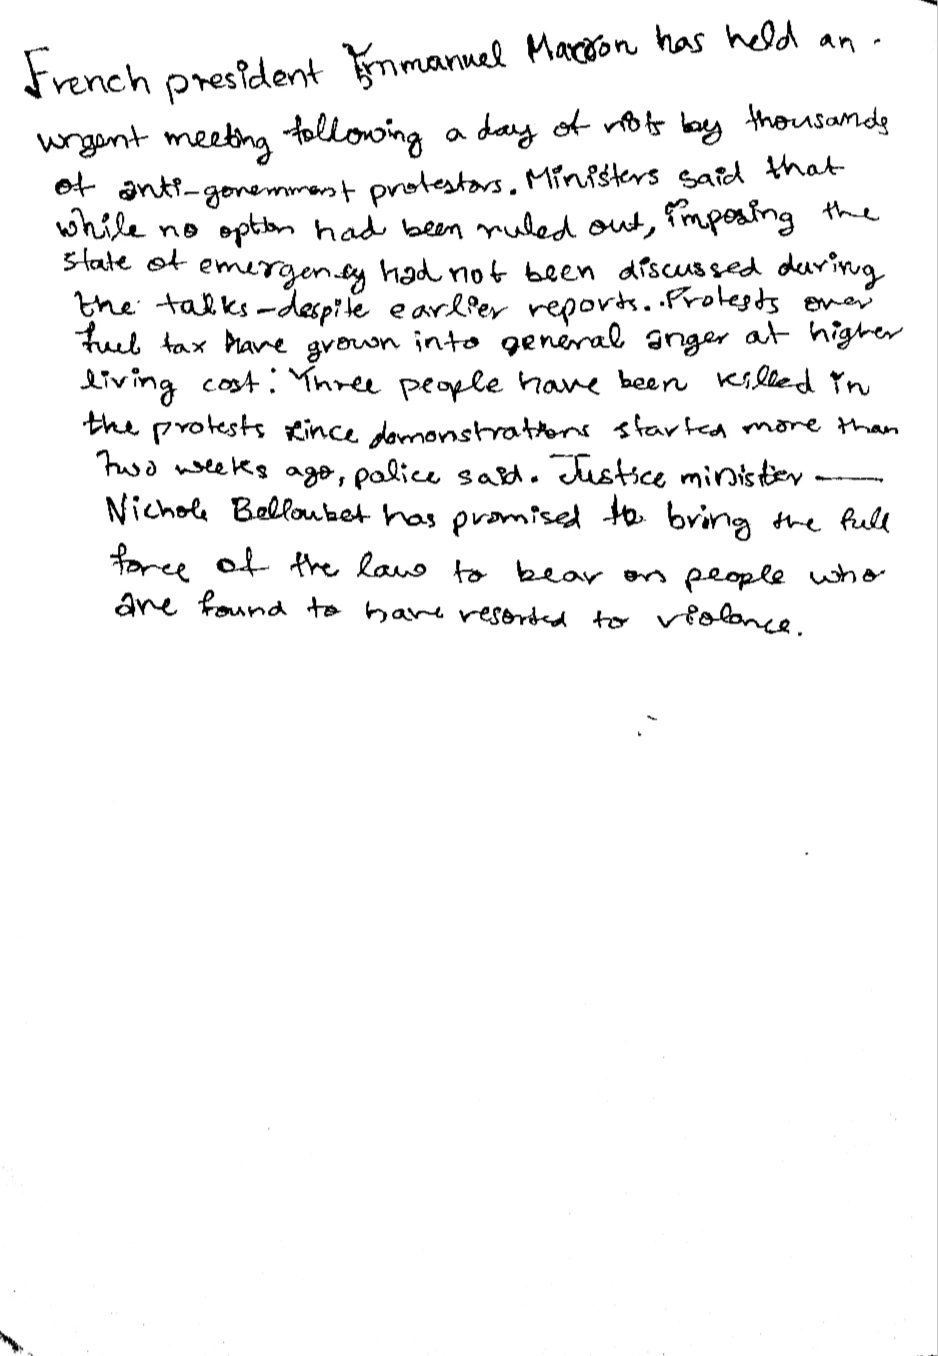 French president Emmanuel Macron has held an
urgent meeting following a day of riots by thousands
of anti-government protestors. Ministers said that
while no option had been ruled out, imposing the
state of emergency had not been discussed during
the talks - despite earlier reports. Protests over
fuel tax have grown into general anger at higher
living cost. Three people have been killed in
the protests since demonstrations started more than
two weeks ago, police said. Justice minister —
Nichole Belloubet has promised to bring the full
force of the law to bear on people who
are found to have resorted to violance.